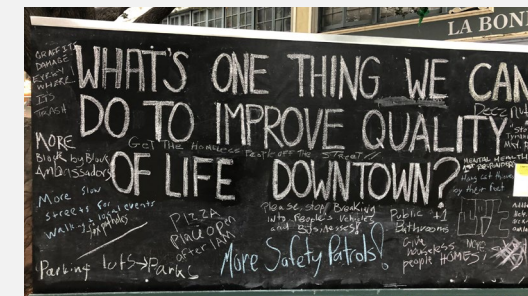 LA BON
WHAT'S ONE THING WE CAN
DO TO IMPROVE QUALITY
OF LIFE DOWNTOWN?
GRAFFITI
DAMAGE
EVERY
WHERE
ITS
TRASH
Get THE HOMELESS PEOPLE OFF THE STREET
MORE
Block by Block
Ambassadors
More slow
streets for
walking & social events
Parking lots → Parks
PIZZA
place open
after 1AM
Please stop Breaking
into People's Vehicles
and Businesses!
More Safety Patrols!
Public +1
Bathrooms
Give
houseless
people HOMES!
MENTAL HEALTH
by their feet